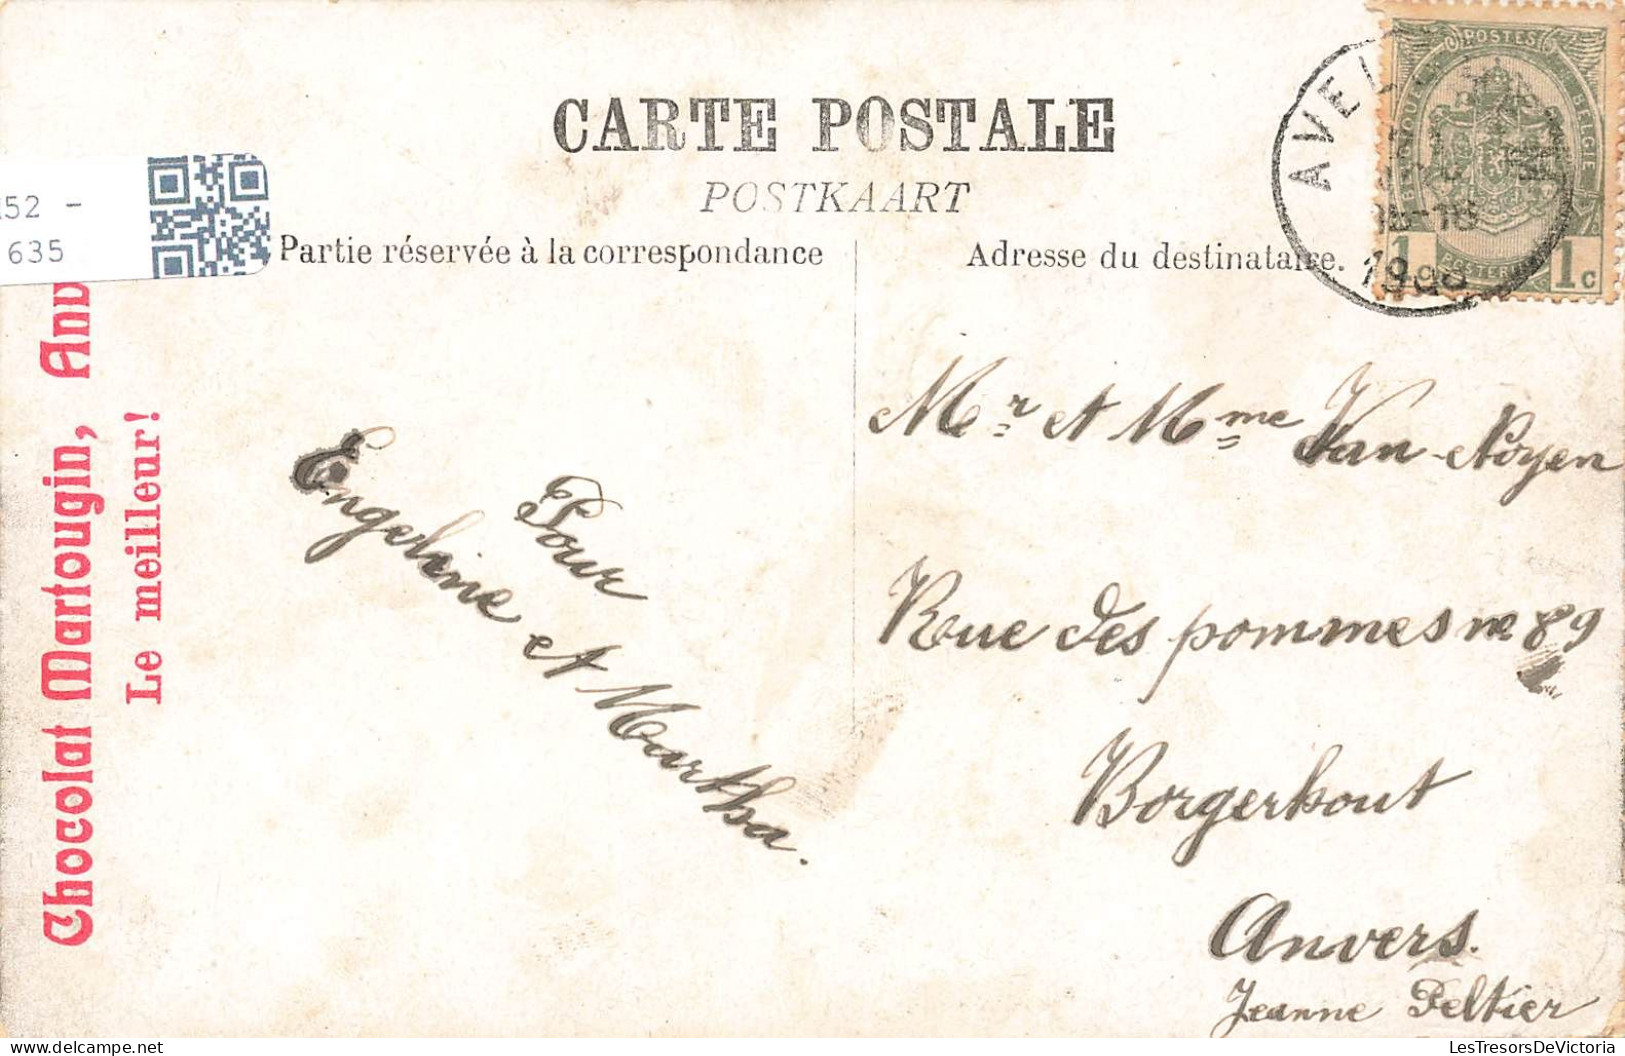 CARTE POSTALE
POSTKAART
Partie réservée à la correspondance
Adresse du destinataire.
152 -
635
Chocolat Martougin, Anv
Le meilleur!
POSTES
BELGIQUE
BELGIE
POSTERIJ
1 1c
AVEL
15-16
Pour
Engeline et Martha.
Mr et Mme Van Noyen
Rue des pommes no 89
Borgerhout
Anvers.
Jeanne Peltier
www.delcampe.net
LesTresorsDeVictoria